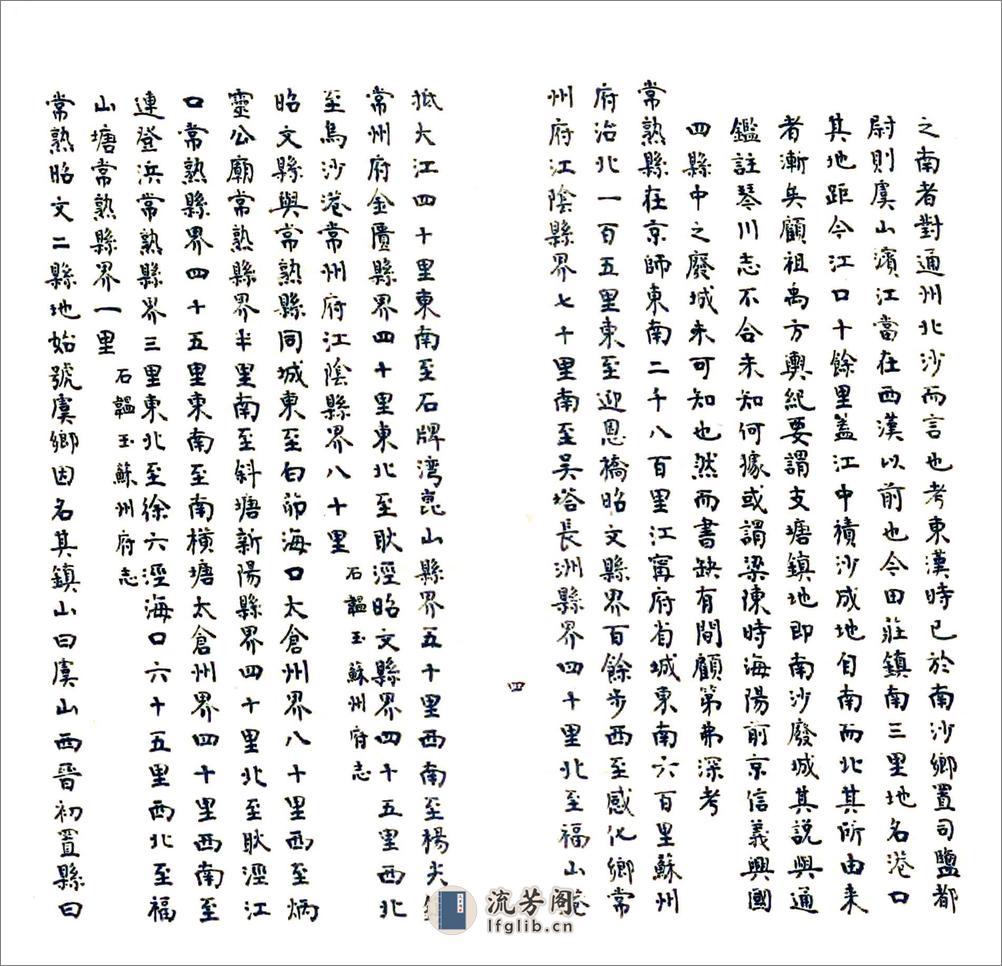 之南者對通州北沙而言也考東漢時已於南沙鄉置司鹽都
尉則虞山濱江當在西漢以前也今田莊鎮南三里地名港口
其地距今江口十餘里蓋江中積沙成地自南而北其所由来
者漸矣顧祖禹方輿紀要謂支塘鎮地即南沙廢城其說與通
鑑註琴川志不合未知何據或謂梁陳時海陽前京信義興國
四縣中之廢城未可知也然而書缺有間顧第弗深考
常熟縣在京師東南二千八百里江甯府省城東南六百里蘇州
府治北一百五里東至迎恩橋昭文縣界百餘步西至感化鄉常
州府江陰縣界七十里南至吴塔長洲縣界四十里北至福山港
四
抵大江四十里東南至石牌湾崑山縣界五十里西南至楊尖
常州府金匱縣界四十里東北至耿涇昭文縣界四十五里西北
至烏沙港常州府江陰縣界八十里 石韞玉蘇州府志
昭文縣與常熟縣同城東至白茆海口太倉州界八十里西至炳
靈公廟常熟縣界半里南至斜塘新陽縣界四十里北至耿涇江
口常熟縣界四十五里東南至南横塘太倉州界四十里西南至
連登浜常熟縣界三里東北至徐六涇海口六十五里西北至福
山塘常熟縣界一里 石韞玉蘇州府志
常熟昭文二縣地始號虞鄉因名其鎮山曰虞山西晉初置縣曰
流芳阁
lfglib.cn